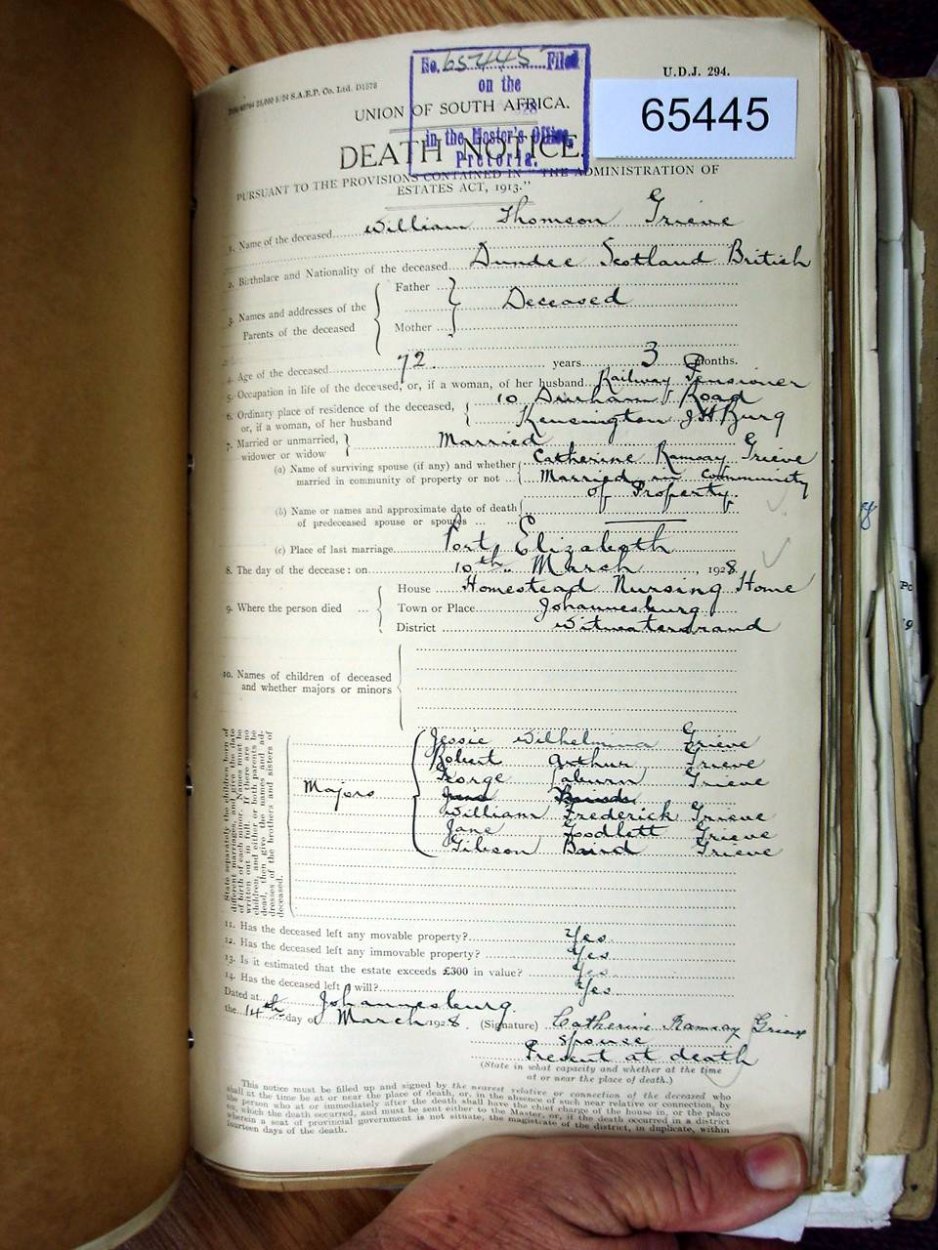 No. 65445 Filed
on the
in the Master's Office,
Pretoria.
U.D.J. 294.
65445
25,000 5/24 S.A.E.P. Co. Ltd. D1578
UNION OF SOUTH AFRICA.
DEATH NOTICE.
PURSUANT TO THE PROVISIONS CONTAINED IN "THE ADMINISTRATION OF
ESTATES ACT, 1913."
1. Name of the deceased William Thomson Grieve
2. Birthplace and Nationality of the deceased Dundee Scotland British
3. Names and addresses of the Parents of the deceased
Father
Deceased
Mother
4. Age of the deceased 72 years 3 months.
5. Occupation in life of the deceased, or, if a woman, of her husband Railway Pensioner
6. Ordinary place of residence of the deceased, or, if a woman, of her husband
10 Durham Road
Kensington JHBurg
7. Married or unmarried, widower or widow
Married
(a) Name of surviving spouse (if any) and whether married in community of property or not
Catherine Ramsay Grieve
Married in community
of Property.
(b) Name or names and approximate date of death of predeceased spouse or spouses
(c) Place of last marriage Port Elizabeth
8. The day of the decease: on 10th March, 1928.
9. Where the person died
House Homestead Nursing Home
Town or Place Johannesburg
District Witwatersrand
10. Names of children of deceased and whether majors or minors
State separately the children born of
different marriages, and give the date
of birth of each minor. Names must be
written out in full. If there are no
children, and either or both parents be
dead, then give the names and ad-
dresses of the brothers and sisters of
deceased.
Majors
Jessie Wilhelmina Grieve
Robert Arthur Grieve
George Grieve
William Frederick Grieve
Jane Grieve
Gibson Baird Grieve
11. Has the deceased left any movable property? Yes
12. Has the deceased left any immovable property? Yes
13. Is it estimated that the estate exceeds £300 in value? Yes
14. Has the deceased left a will? Yes
Dated at Johannesburg
the 14th day of March 1928. (Signature) Catherine Ramsay Grieve
Spouse
Present at death
(State in what capacity and whether at the time
at or near the place of death.)
This notice must be filled up and signed by the nearest relative or connection of the deceased who
shall at the time be at or near the place of death, or, in the absence of such near relative or connection, by
the person who at or immediately after the death shall have the chief charge of the house in, or the place
on, which the death occurred, and must be sent either to the Master, or, if the death occurred in a district
wherein a seat of provincial government is not situate, the magistrate of the district, in duplicate, within
fourteen days of the death.